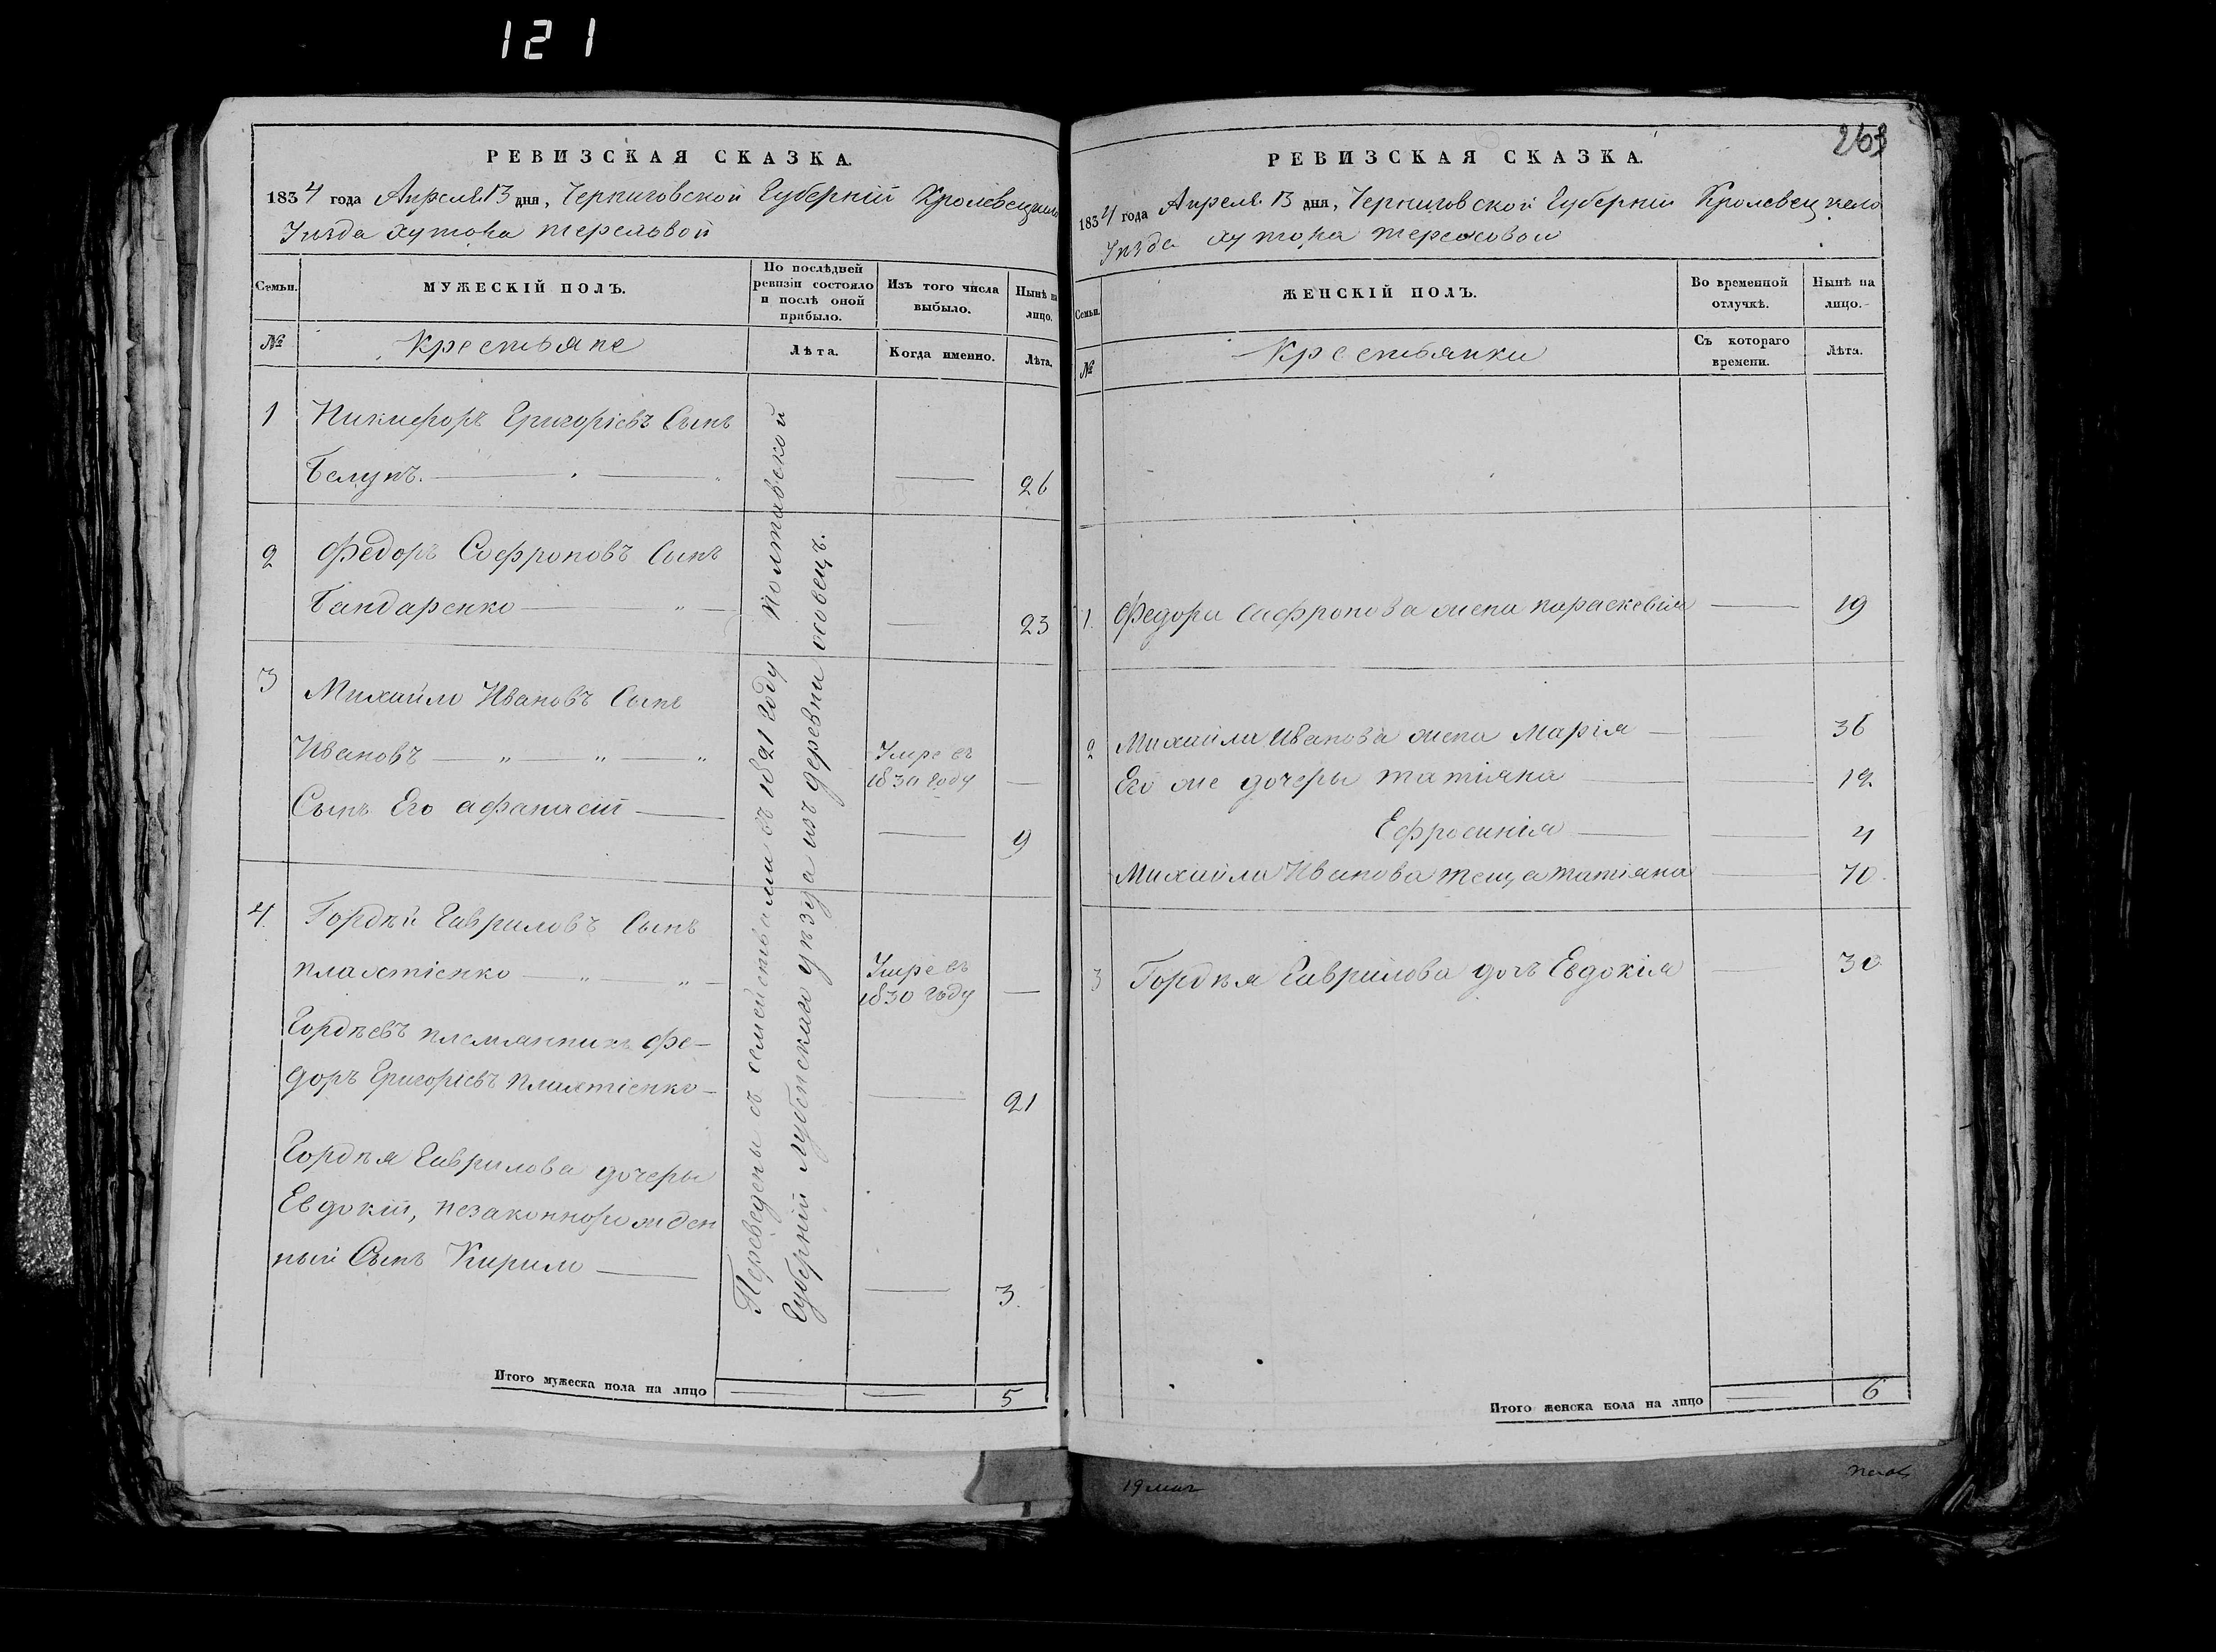 121
РЕВИЗСКАЯ СКАЗКА.
1834 года Апреля 13 дня, Черниговской Губерніи Кролевецкаго
Уѣзда хутора
Семьи.
МУЖЕСКІЙ ПОЛЪ.
По послѣдней ревизіи состояло и послѣ оной прибыло.
Изъ того числа выбыло.
Нынѣ на лицо.
№
Крестьяне
Лѣта.
Когда именно.
Лѣта.
1 Никифоръ Григорієвъ Сынъ
— 26
2 Федоръ Софроновъ Сынъ
Бандаренко — " — — 23
3 Михайло Ивановъ Сынъ
Ивановъ — " — " — "
Умре въ
1830 году —
Сынъ Его афанасій — — 9
4. Гордѣй Гавриловъ Сынъ
— " — " —
Умре въ
1830 году —
Гордѣевъ племянникъ Фе-
доръ Григорієвъ — 21
Гордѣя Гаврилова дочеры
Евдокіи, незаконнорожден
ный Сынъ Кирило — — 3.
Переведены съ семействами въ 1821 году Полтавской
Губерніи Лубенскаго уѣзда изъ деревни осовецъ.
Итого мужеска пола на лицо — — 5
263
РЕВИЗСКАЯ СКАЗКА.
1834 года Апреля 13 дня, Черниговской Губерніи Кролевецкаго
Уѣзда хутора
Семьи.
ЖЕНСКІЙ ПОЛЪ.
Во временной отлучкѣ.
Нынѣ на лицо.
№
Крестьянки
Съ котораго времени.
Лѣта.
1. Федора Сафронова жена параскевія — 19
2 Михайла Иванова жена Марія — 36
Его же дочеры татіяна — 12
Ефросинія — — 4
Михайла Иванова теща татіяна — 70.
3 Гордѣя Гаврилова дочь Евдокія — 30
Итого женска пола на лицо — 6